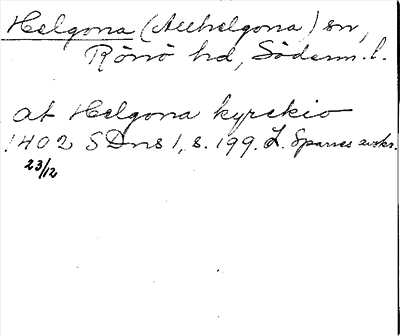 Helgona (Allhelgona) sn,
Rönö hd, Söderm. l.
at Helgona kyrekio
1402 SDns 1, s. 199. L. Sparres avskr.
23/12